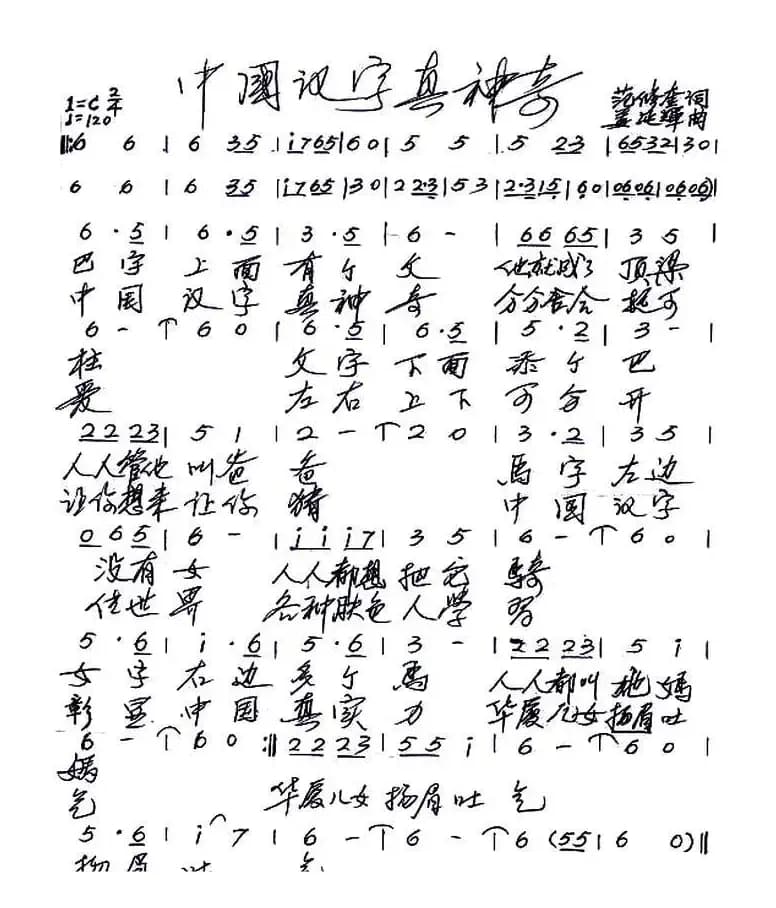 中國汉字真神奇
1=C 2/4
♩=120
范修奎词
孟延輝曲
‖:6 6 | 6 35 | i765 | 60 | 5 5 | 5 23 | 6532 | 30 |
6 6 | 6 35 | i765 | 30 | 22·3 | 53 | 2·315 | 60 | 0606 | 0606)|
6·5 | 6·5 | 3·5 | 6 - | 6665 | 3 5 |
巴字上面有个父 他就成了顶梁
中国汉字真神奇 分分合合挺可
6 - | 6 0 | 6·5 | 6·5 | 5·2 | 3 - |
柱 父字下面添个巴
爱 左右上下可分开
2223 | 5 1 | 2 - | 2 0 | 3·2 | 3 5 |
人人管他叫爸爸 馬字左边
让你想来让你猜 中国汉字
065 | 6 - | i i i7 | 3 5 | 6 - | 6 0 |
没有女 人人都想把它騎
传世界 各种肤色人学习
5·6 | i·6 | 5·6 | 3 - | 2223 | 5 i |
女字右边多个馬 人人都叫她媽
彰显中国真实力 华厦儿女扬眉吐
6 - | 6 0 :‖ 2223 | 55 i | 6 - | 6 0 |
媽
气 华厦儿女扬眉吐气
5·6 | i 7 | 6 - | 6 - | 6 (55 | 6 0)‖
扬眉吐气